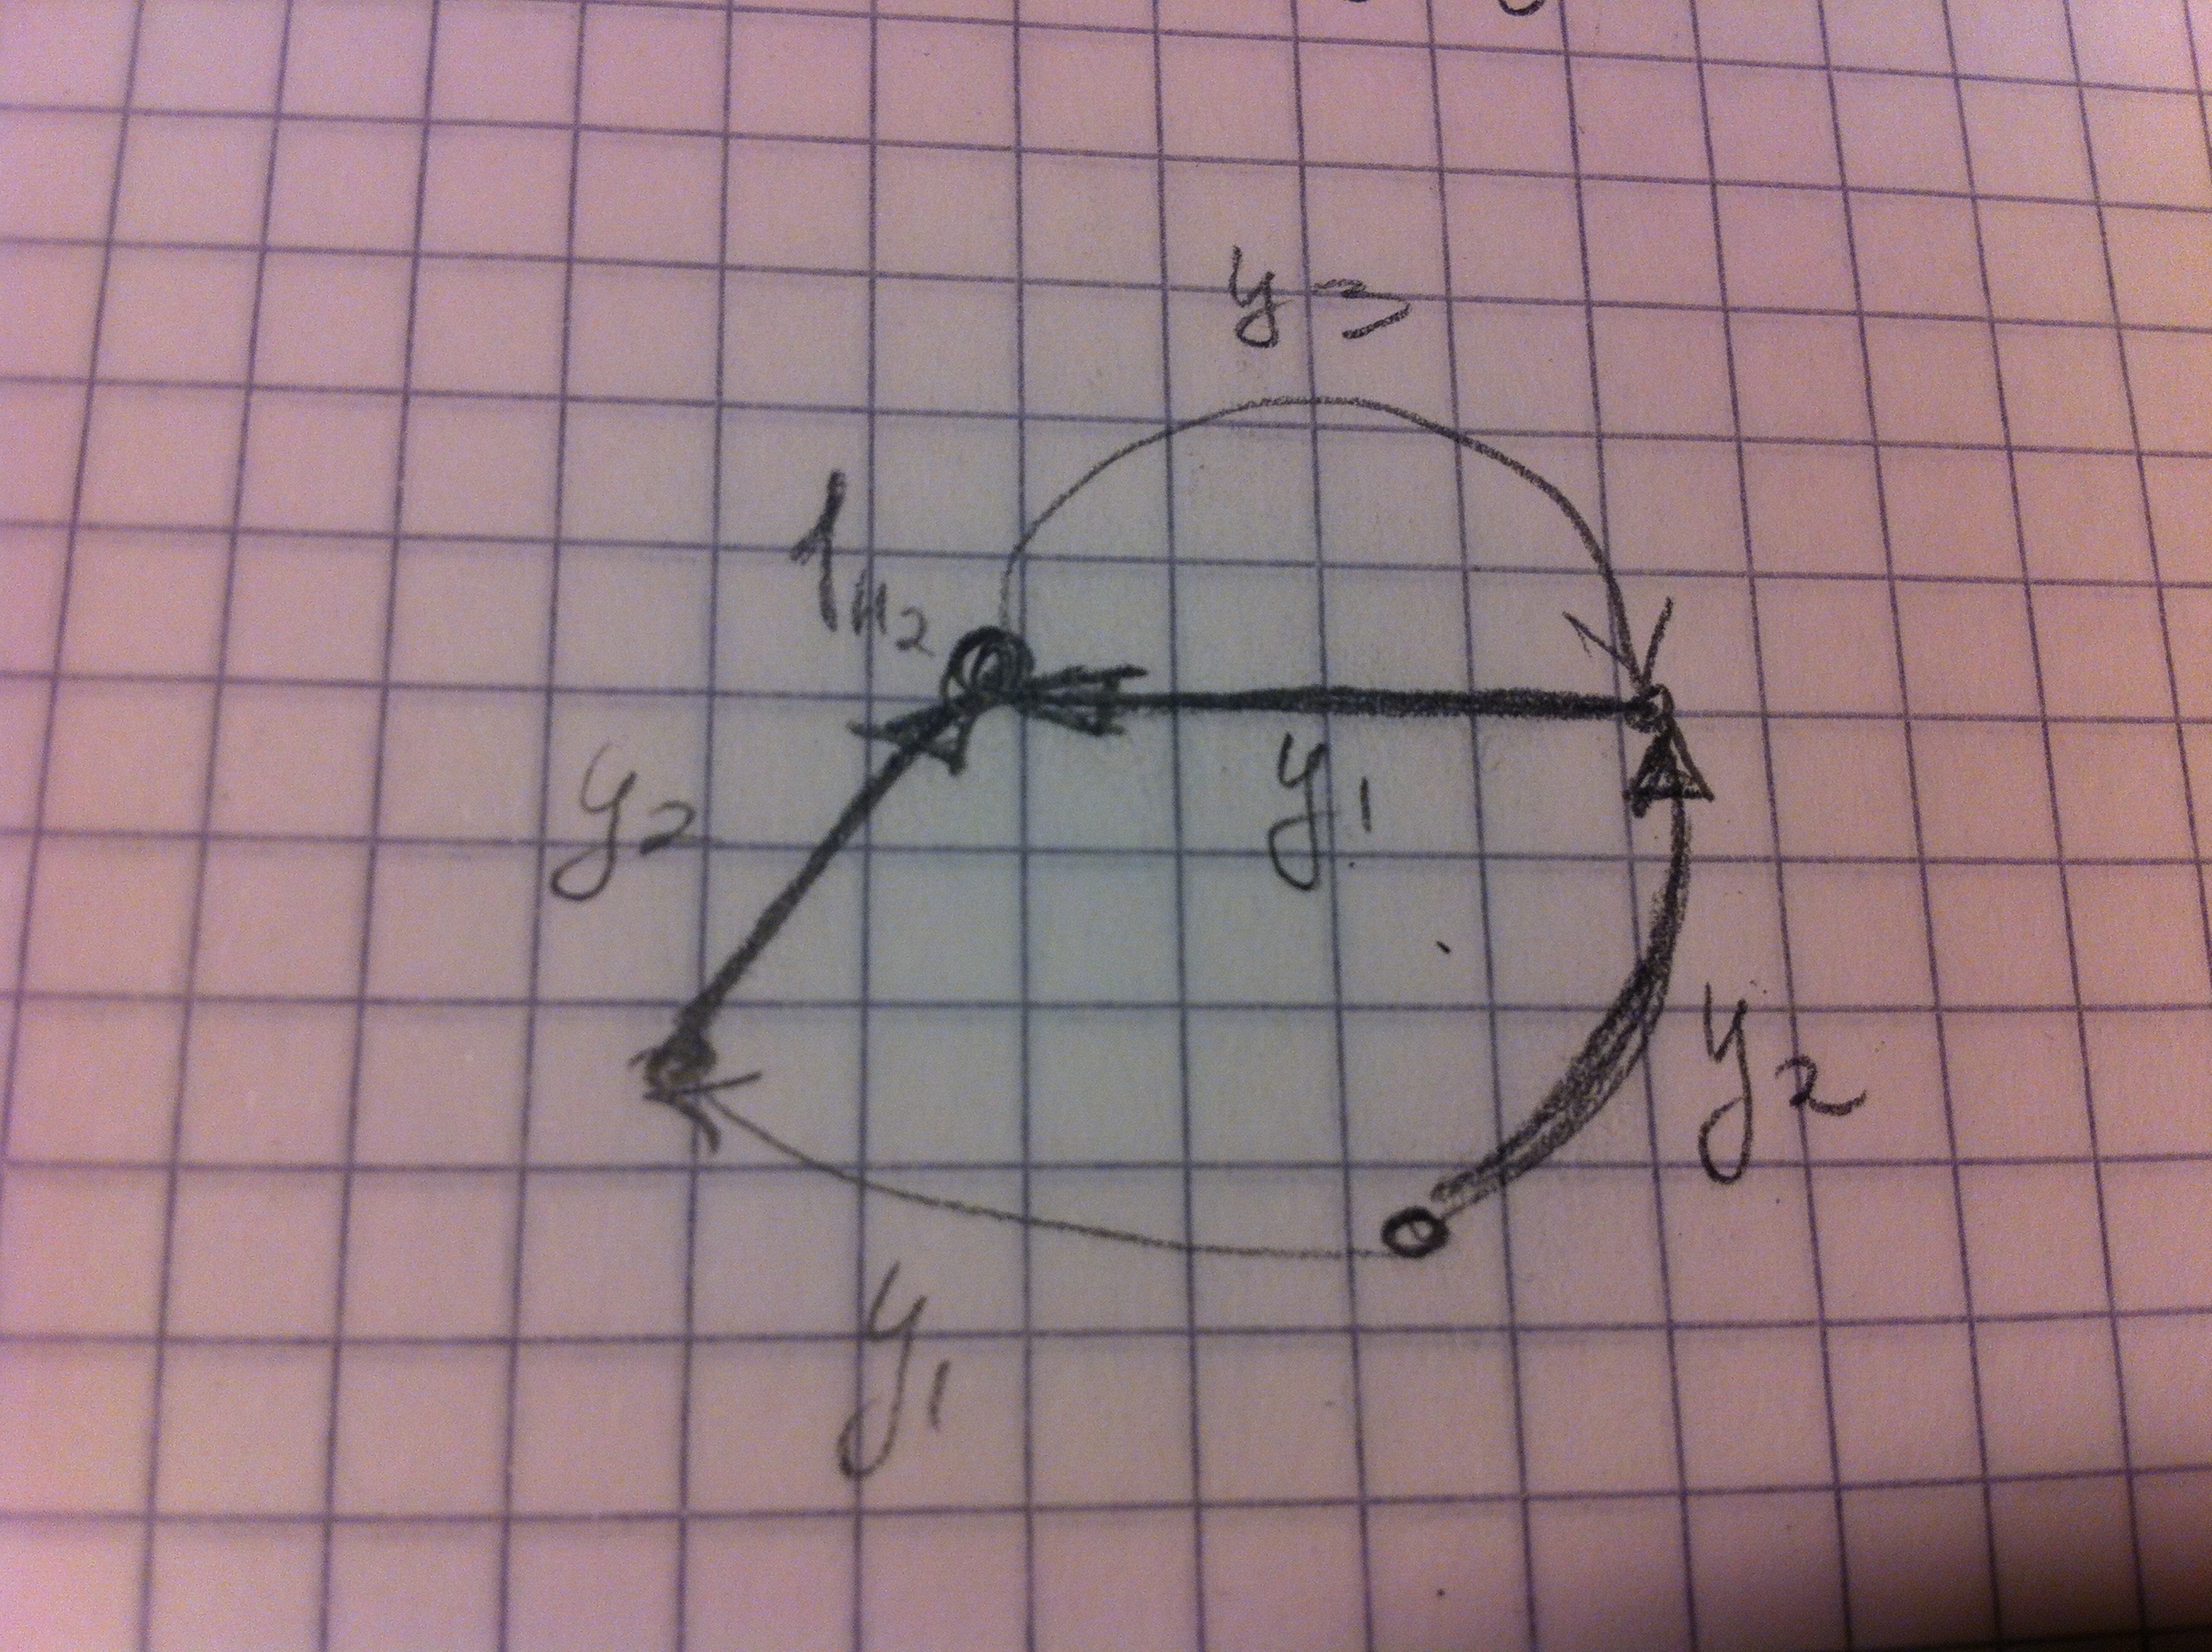 y3
1H2
y2
y1
y2
y1